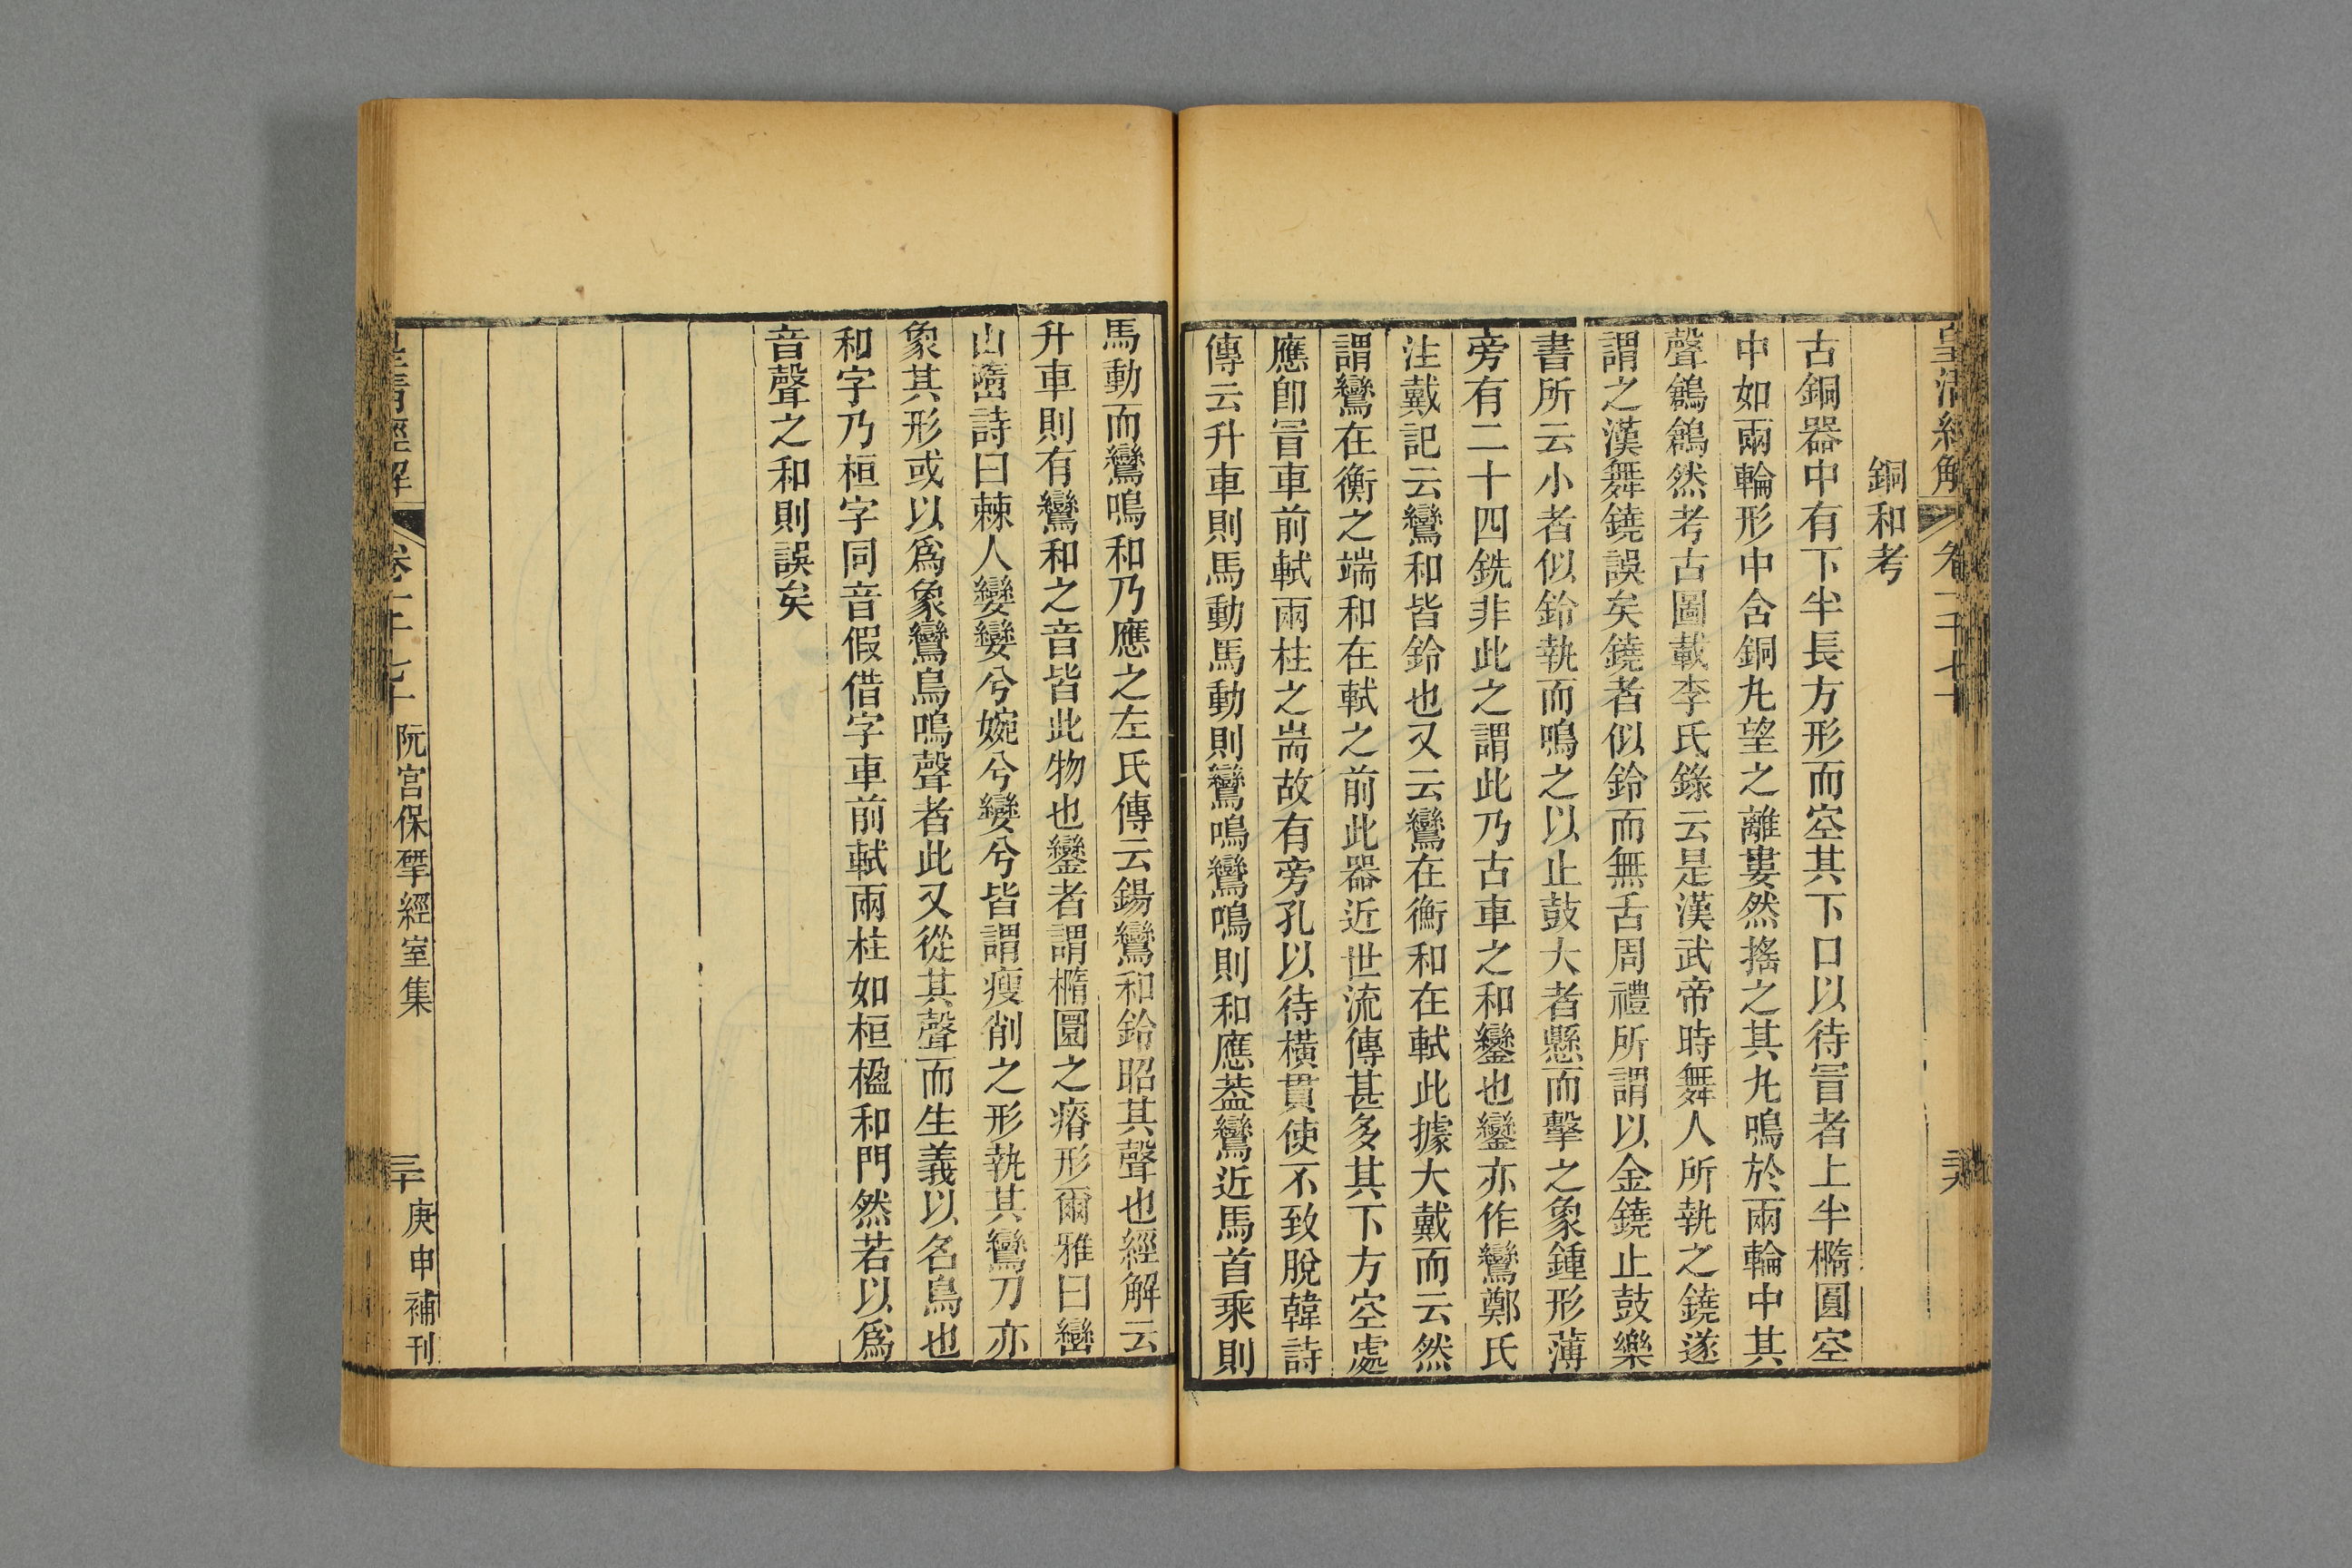 皇清經解
卷一千七十
銅和考
古銅器中有下半長方形而空其下口以待冒者上半橢圓空
中如兩輪形中含銅丸望之離婁然搖之其丸鳴於兩輪中其
聲鶬鶬然考古圖載李氏錄云是漢武帝時舞人所執之鐃遂
謂之漢舞鐃誤矣鐃者似鈴而無舌周禮所謂以金鐃止鼓樂
書所云小者似鈴執而鳴之以止鼓大者懸而擊之象鍾形薄
旁有二十四銑非此之謂此乃古車之和鑾也鑾亦作鸞鄭氏
注戴記云鸞和皆鈴也又云鸞在衡和在軾此據大戴而云然
謂鸞在衡之端和在軾之前此器近世流傳甚多其下方空處
應卽冒車前軾兩柱之耑故有旁孔以待橫貫使不致脫韓詩
傳云升車則馬動馬動則鸞鳴鸞鳴則和應葢鸞近馬首乘則
馬動而鸞鳴和乃應之左氏傳云鍚鸞和鈴昭其聲也經解云
升車則有鸞和之音皆此物也鑾者謂橢圜之瘠形爾雅曰巒
山隋巒詩曰棘人欒欒兮婉兮孌兮皆謂瘦削之形執其鸞刀亦
象其形或以爲象鸞鳥鳴聲者此又從其聲而生義以名鳥也
和字乃桓字同音假借字車前軾兩柱如桓楹和門然若以爲
音聲之和則誤矣
皇清經解
卷一千七十
阮宮保揅經室集
三十
庚申補刊